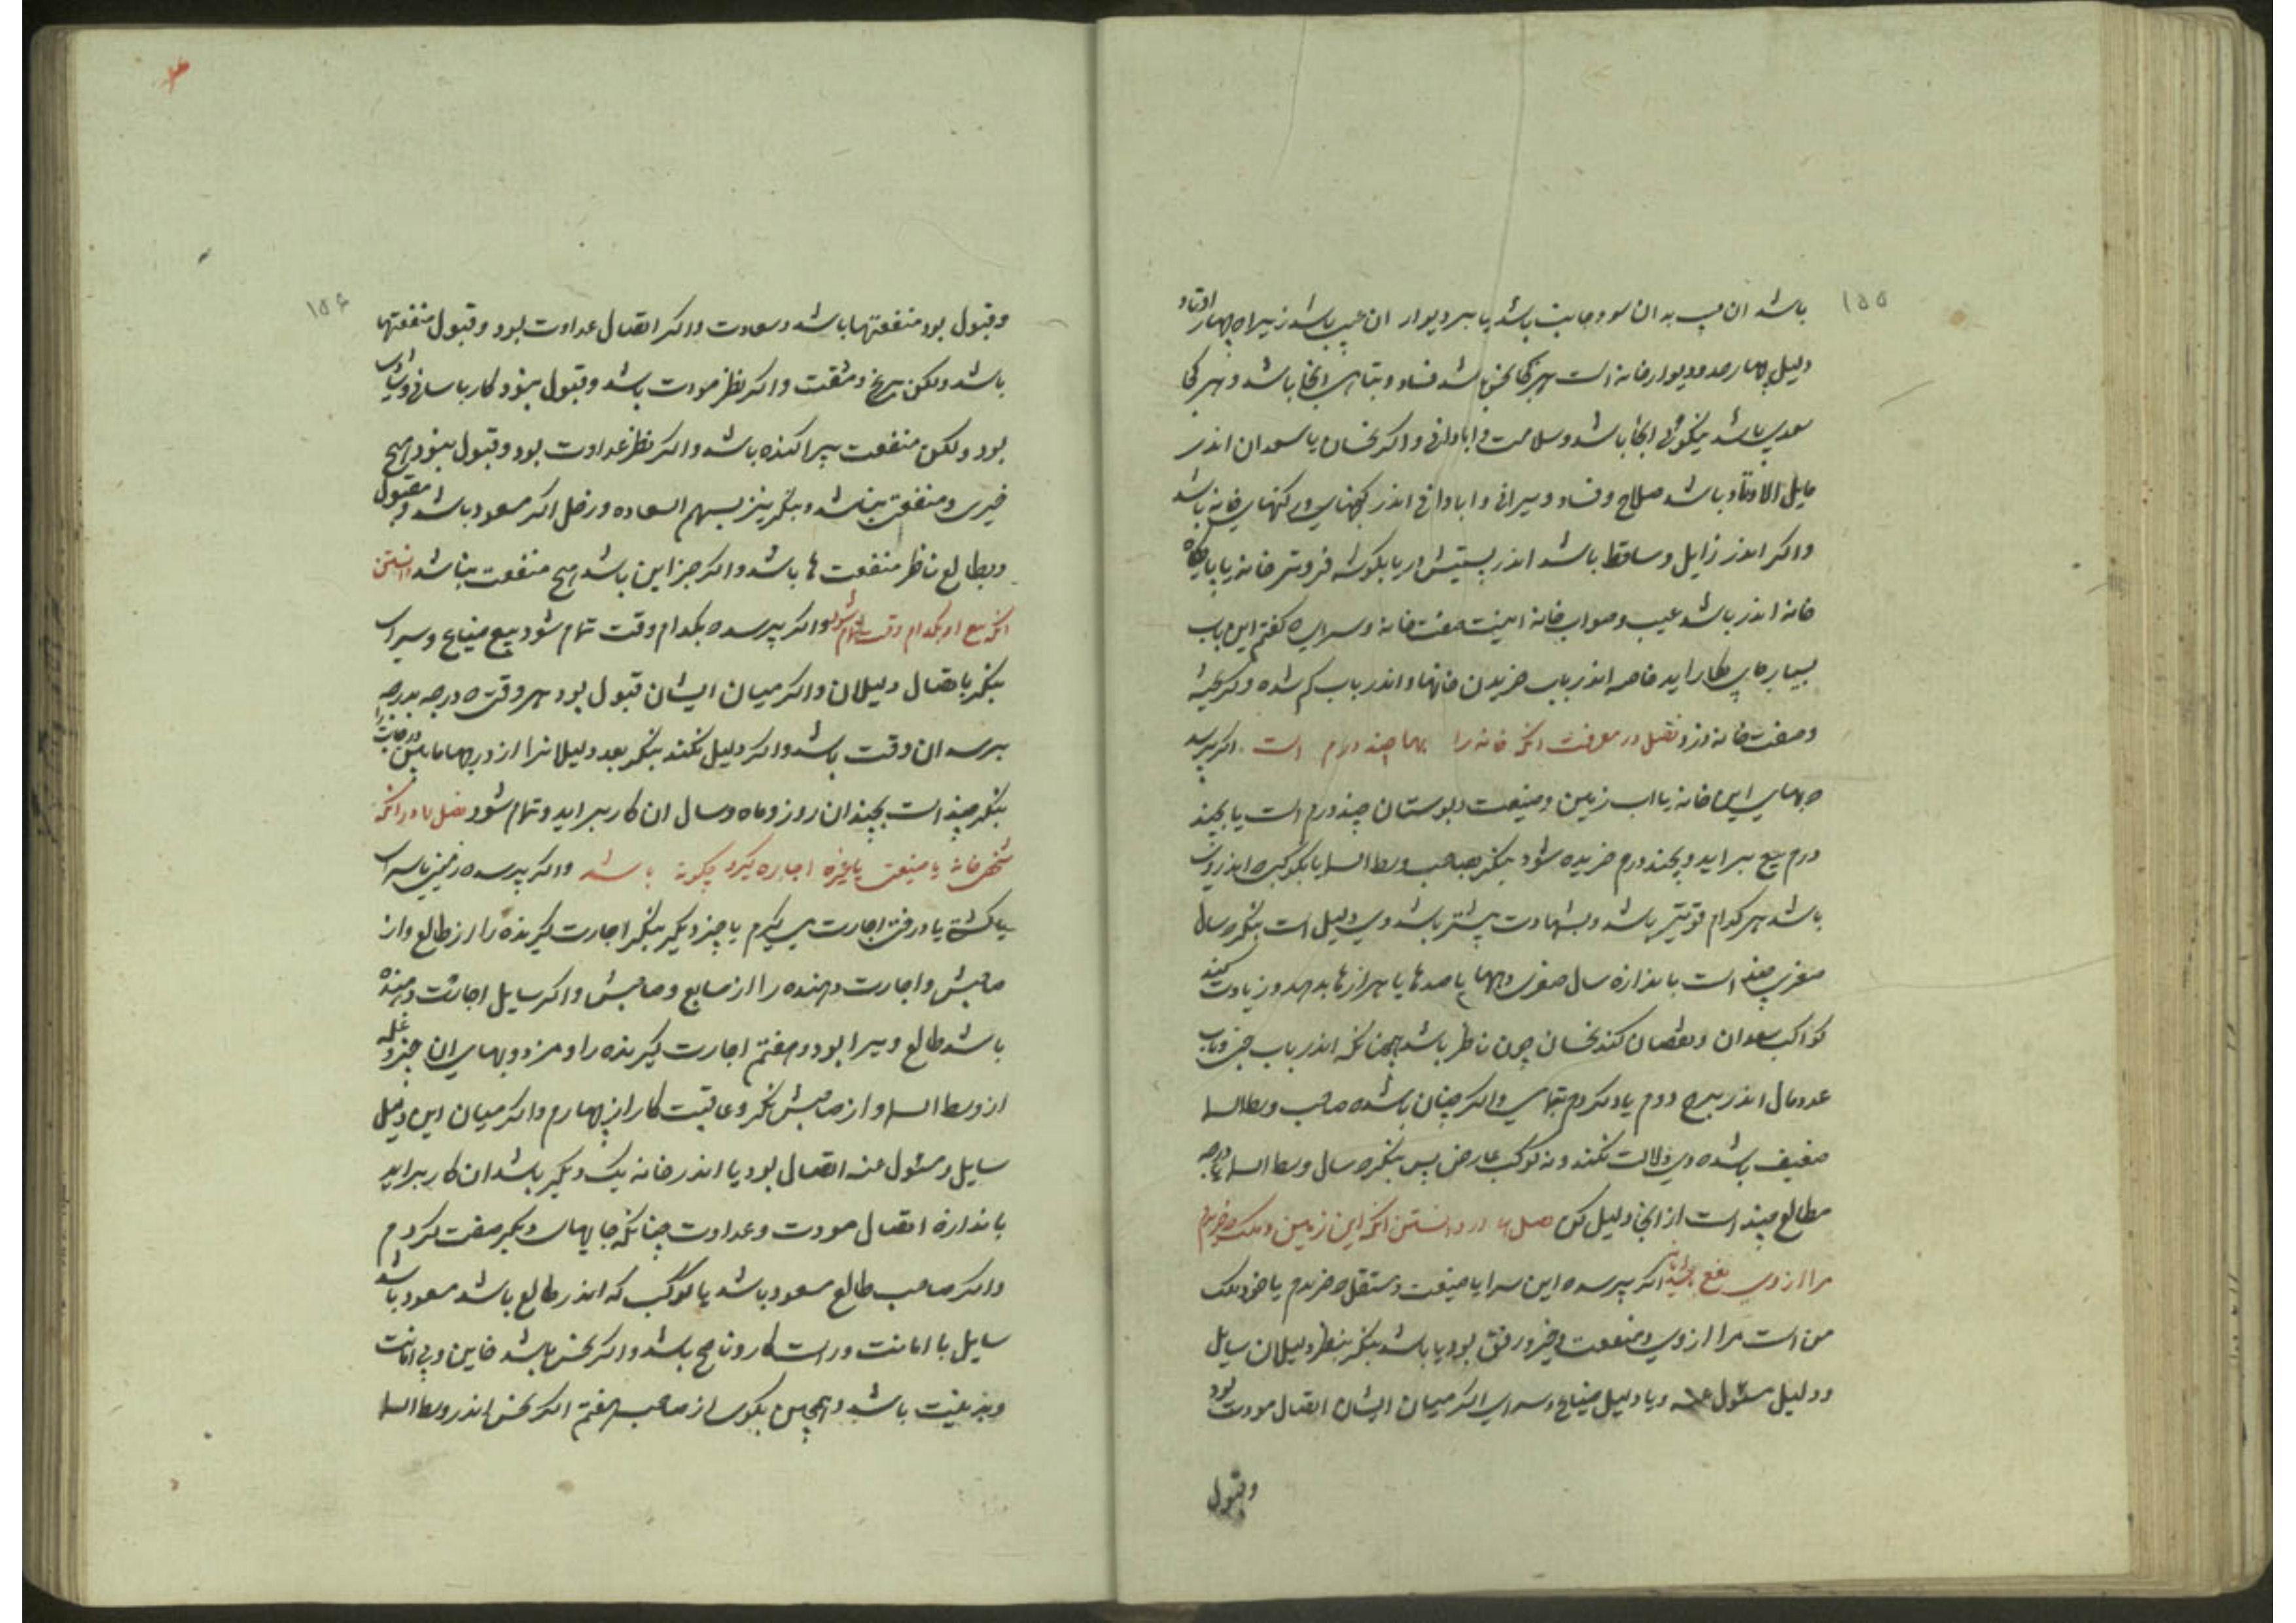 ۱۵۵
باشد ان عیب بدان سو و جانب باشد یا بر دیوار ان عیب باشد زیراه چهار اوتاد
دلیل چهار حدود دیوار خانه است هر کجا نحس باشد فساد و تباهی انجا باشد و هر کجا
سعدی باشد نیکوئی انجا باشد و سلامت و ابادانی و اکر نحسان یا سعدان اندر
مایل الاوتاد باشد صلاح و فساد و ویرانی و ابادانی اندر کنجهای و رکنهای خانه باشد
واکر اندر زایل و ساقط باشد اندر یا بکوشه فروتر خانه یا پایکاه
خانه اندر باشد عیب و صواب خانه اینست صفت خانه و سرای که کفتم این باب
بسیار جای بکار اید خاصه اندر باب خریدن خانها و اندر باب کم شده و کریخته
و صفت خانه دزد فصل در معرفت انکه خانه را بها چند درم است اکر پرسد
ه بهای این خانه یا اب زمین و ضیعت و بوستان چند درم است یا بچند
درم بیع براید و بچند درم خریده شود بنکر بصاحب وسط السما یا بکوکبی ه اندروی
باشد هر کدام قویتر باشد و بشهادت بیشتر باشد وی دلیل است بنکر ه سال
صغری چند است باندازه سال صغری بها یا صدها یا هزارها بدهد و زیادت کنند
کواکب سعدان و نقصان کنند نحسان چون ناظر باشد همچنانکه اندر باب
عدد مال اندر برج دوم یاد کردم بتمامی واکر چنان باشد ه صاحب وسط السما
ضعیف باشد ه وی دلالت نکند و نه کوکب عارض پس بنکر ه سال وسط السما یا درجه
مطالع چند است از انجا دلیل کن فصل در دانستن انکه این زمین و ملک ه خریدم
مرا از وی نفع باشد یا نه اکر پرسد ه این سرا یا ضیعت و مستقل ه خریدم یا خود ملک
من است مرا از وی منفعت و خیر و رفق بود یا باشد بنکر بنظر دلیلان سایل
و دلیل مسئول عنه و یا دلیل ضیاع و سرای اکر میان ایشان اتصال مودت بود
وقبول
۱۵۶
وقبول بود منفعتها باشد و سعادت واکر اتصال عداوت بود و قبول منفعتها
باشد ولکن برنج و مشقت واکر نظر مودت باشد و قبول نبود کار باسانی و شادی
بود ولکن منفعت پراکنده باشد واکر نظر عداوت بود و قبول نبود هیچ
خیری و منفعتی نباشد و بنکر نیز بسهم السعاده و زحل اکر مسعود باشد و مقبول
و بطالع ناظر منفعت ها باشد واکر جز این باشد هیچ منفعت نباشد دانستن
انکه بیع او بکدام وقت تمام شود واکر پرسد ه بکدام وقت تمام شود بیع ضیاع و سرای
بنکر باتصال دلیلان واکر میان ایشان قبول بود هر وقتی ه درجه بدرجه
برسد ان وقت باشد واکر دلیل نکند بنکر بعد دلیلانرا از درجها مابین درجات را
بنکر چند است بچندان روز و ماه و سال ان کار براید و تمام شود فصل در انکه
شخص خانه یا ضیعتی یا غیره اجاره کیرد چکونه باشد واکر پرسد ه زمین یا سرای
یا کشتی یا درختی اجارت می کیرم یا چیز دیکر بنکر اجارت کیرنده را از طالع و از
صاحبش و اجارت دهنده را از سابع و صاحبش واکر سایل اجارت دهنده
باشد طالع ویرا بود و هفتم اجارت کیرنده را و مزد و بهای ان چیز و غله
از وسط السما و از صاحبش نکر و عاقبت کار از چهارم واکر میان این دلیل
سایل و مسئول عنه اتصال بود یا اندر خانه یک دیکر باشد ان کار براید
باندازه اتصال مودت و عداوت چنانکه جایهای دیکر صفت کردم
واکر صاحب طالع مسعود باشد یا کوکب که اندر طالع باشد مسعود باشد
سایل با امانت و راست کار و ناصح باشد واکر نحس باشد خاین و بی امانت
و بد نیت باشد و همچنین بکوی از صاحب هفتم اکر نحس اندر وسط السما